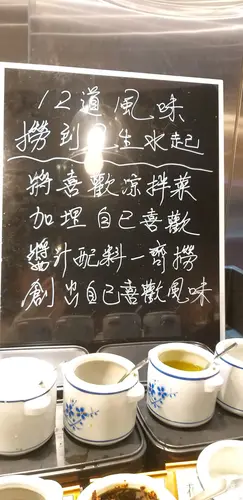 12道風味
撈到風生水起
將喜歡涼拌菜
加埋自己喜歡
醬汁配料一齊撈
創出自己喜歡風味